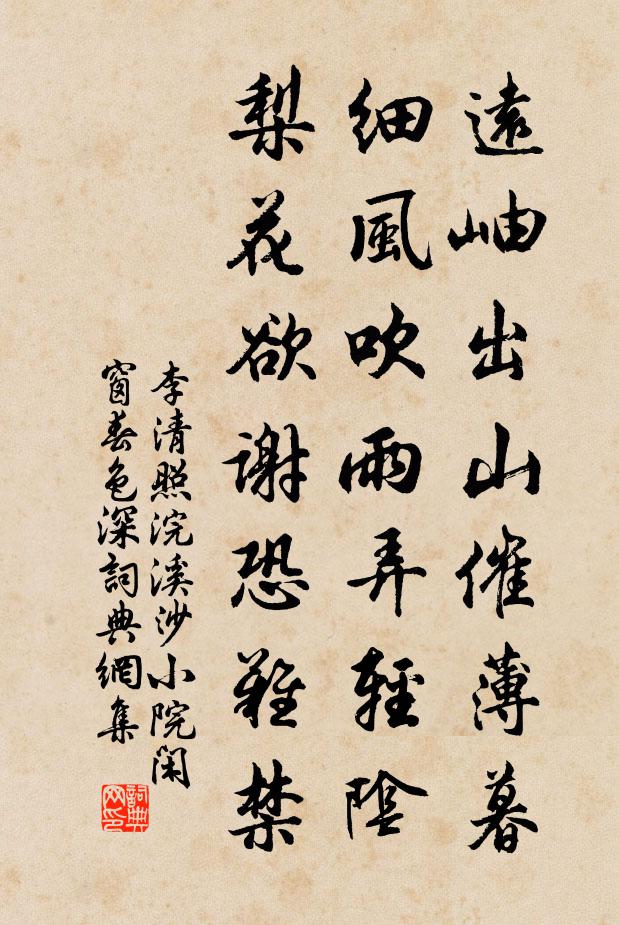 遠岫出山催薄暮
細風吹雨弄輕陰
梨花欲謝恐難禁
李清照浣溪沙小院閑
窗春色深詞典網集
詞典网印